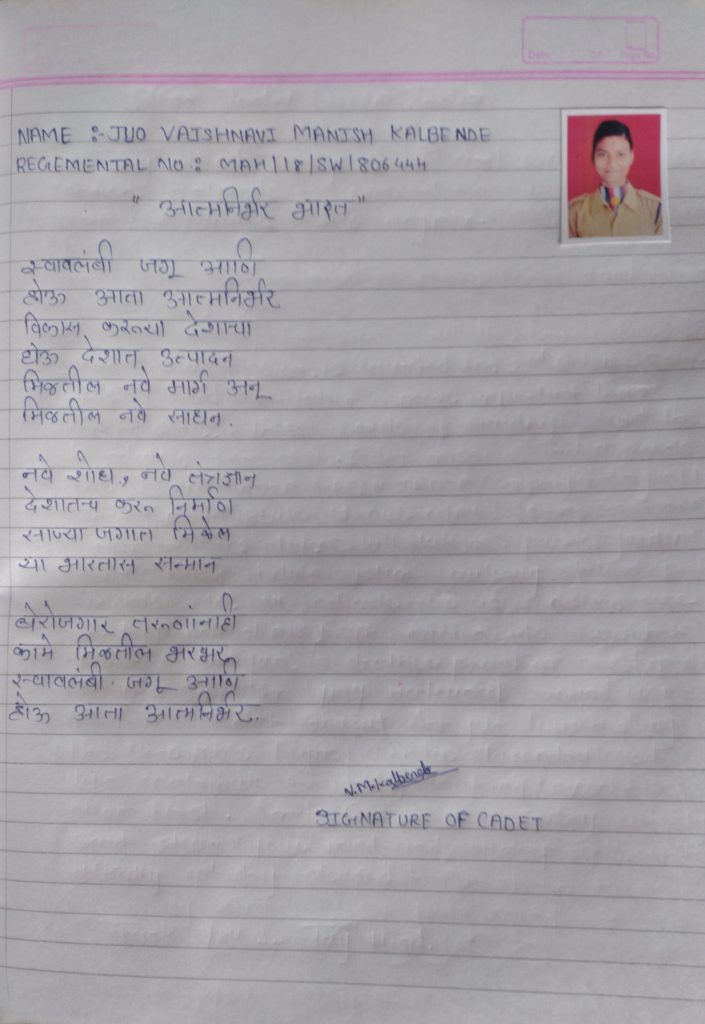 Date
Page No.
NAME :- JUO VAISHNAVI MANISH KALBENDE
REGEMENTAL NO : MAH/18/SW/806444
" आत्मनिर्भर भारत "
स्वावलंबी जगू आणि
होऊ आता आत्मनिर्भर
विकास करूया देशाचा
घेऊ देशात उत्पादन
मिळतील नवे मार्ग अन्
मिळतील नवे साधन.
नवे शोध, नवे तंत्रज्ञान
देशातच करू निर्माण
साऱ्या जगात मिळेल
या भारतास सन्मान
बेरोजगार तरुणांनाही
कामे मिळतील भरभर
स्वावलंबी जगू आणि
होऊ आता आत्मनिर्भर.
V.M.Kalbende
SIGNATURE OF CADET